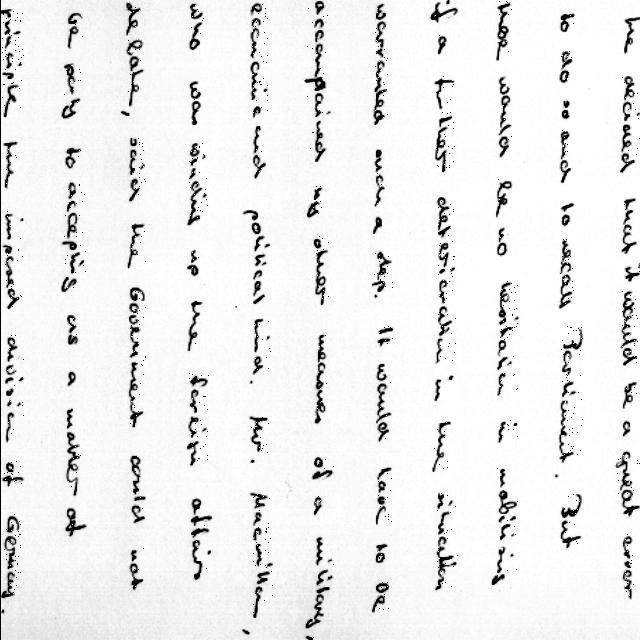 he decided that it would be a great error
to do so and to recall Parliament. But
there would be no hesitation in mobilising
if a further deterioration in the situation
warranted such a step. It would have to be
accompanied by other measures of a military,
economic and political kind. Mr. Macmillan,
who was winding up the foreign affairs
debate, said the Government could not
be party to accepting as a matter of
principle the imposed division of Germany.